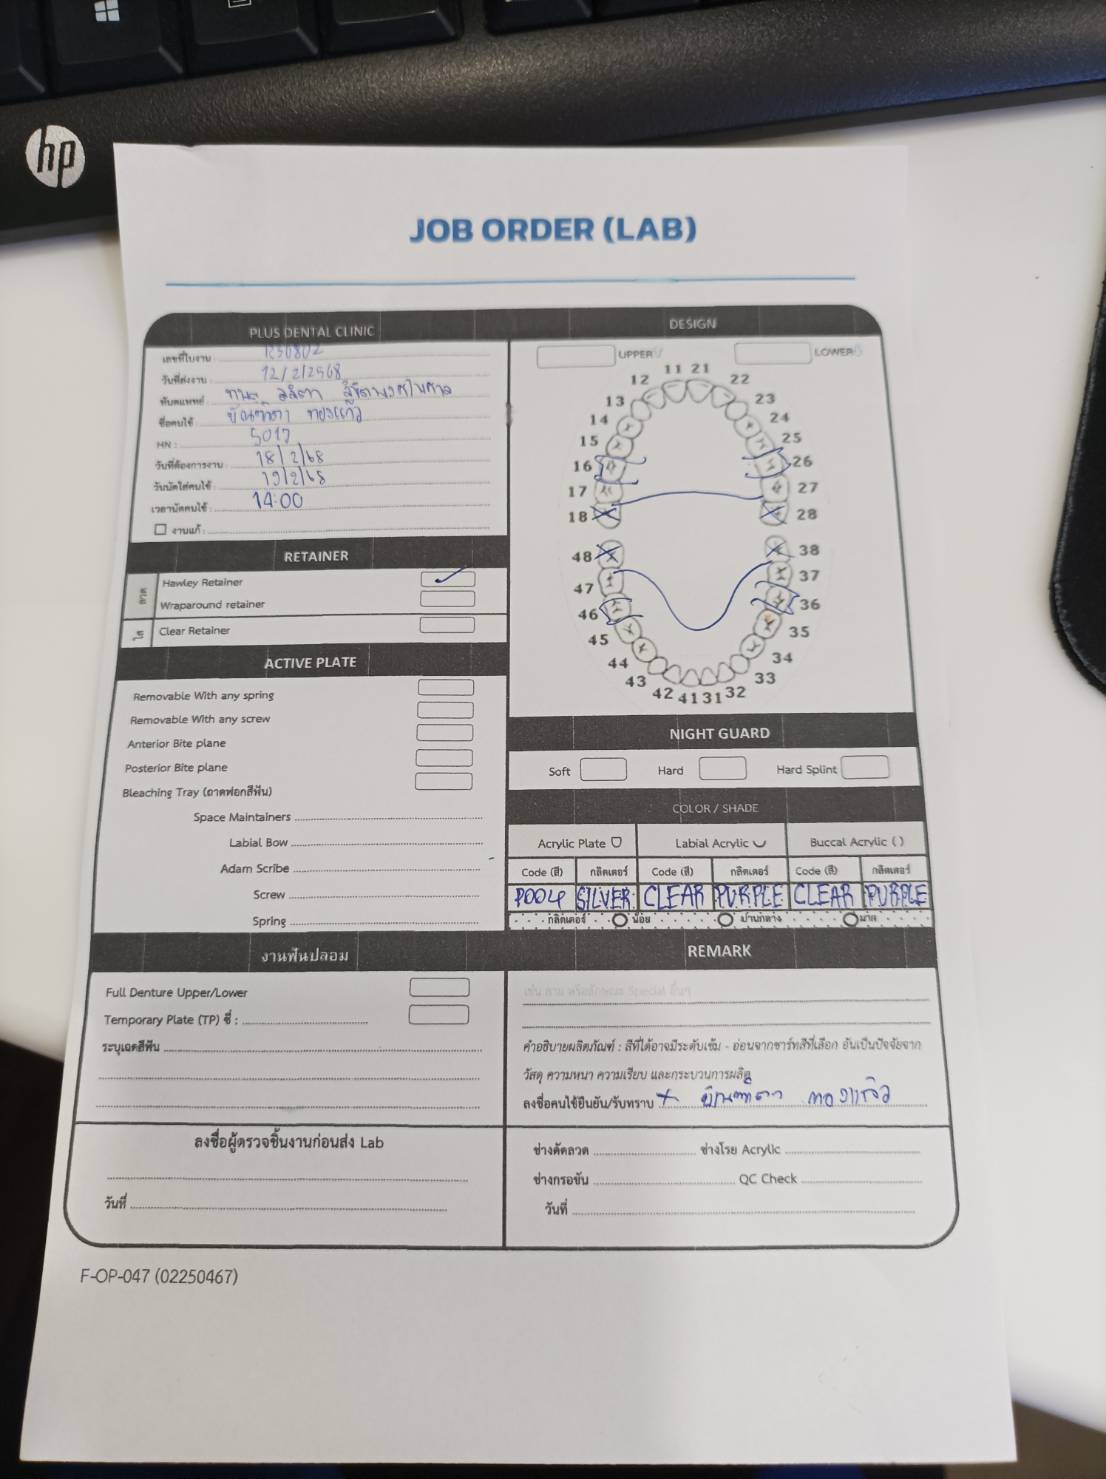 hp
JOB ORDER (LAB)
PLUS DENTAL CLINIC
เลขที่ใบงาน
วันที่ส่งงาน 12/2/2568
ทันตแพทย์
ชื่อคนไข้ ทองแก้ว
HN : 5017
วันที่ต้องการงาน 18/2/68
วันนัดใส่คนไข้ 19/2/68
เวลานัดคนไข้ 14:00
งานแก้ :
RETAINER
ลวด
Hawley Retainer
Wraparound retainer
ใส
Clear Retainer
ACTIVE PLATE
Removable With any spring
Removable With any screw
Anterior Bite plane
Posterior Bite plane
Bleaching Tray (ถาดฟอกสีฟัน)
Space Maintainers
Labial Bow
Adam Scribe
Screw
Spring
งานฟันปลอม
Full Denture Upper/Lower
Temporary Plate (TP) ซี่ :
ระบุเฉดสีฟัน
ลงชื่อผู้ตรวจชิ้นงานก่อนส่ง Lab
วันที่
DESIGN
UPPER
LOWER
11 21
12 22
13 23
14 24
15 25
16 26
17 27
18 28
48 38
47 37
46 36
45 35
44 34
43 33
42 41 31 32
NIGHT GUARD
Soft Hard Hard Splint
COLOR / SHADE
Acrylic Plate Labial Acrylic Buccal Acrylic ( )
Code (สี) กลิตเตอร์ Code (สี) กลิตเตอร์ Code (สี) กลิตเตอร์
P004 SILVER CLEAR PURPLE CLEAR PURPLE
กลิตเตอร์ น้อย ปานกลาง มาก
REMARK
คำอธิบายผลิตภัณฑ์ : สีที่ได้อาจมีระดับเข้ม - อ่อนจากชาร์ทสีที่เลือก อันเป็นปัจจัยจาก
วัสดุ ความหนา ความเรียบ และกระบวนการผลิต
ลงชื่อคนไข้ยืนยัน/รับทราบ ทองแก้ว
ช่างดัดลวด ช่างโรย Acrylic
ช่างกรอขัน QC Check
วันที่
F-OP-047 (02250467)